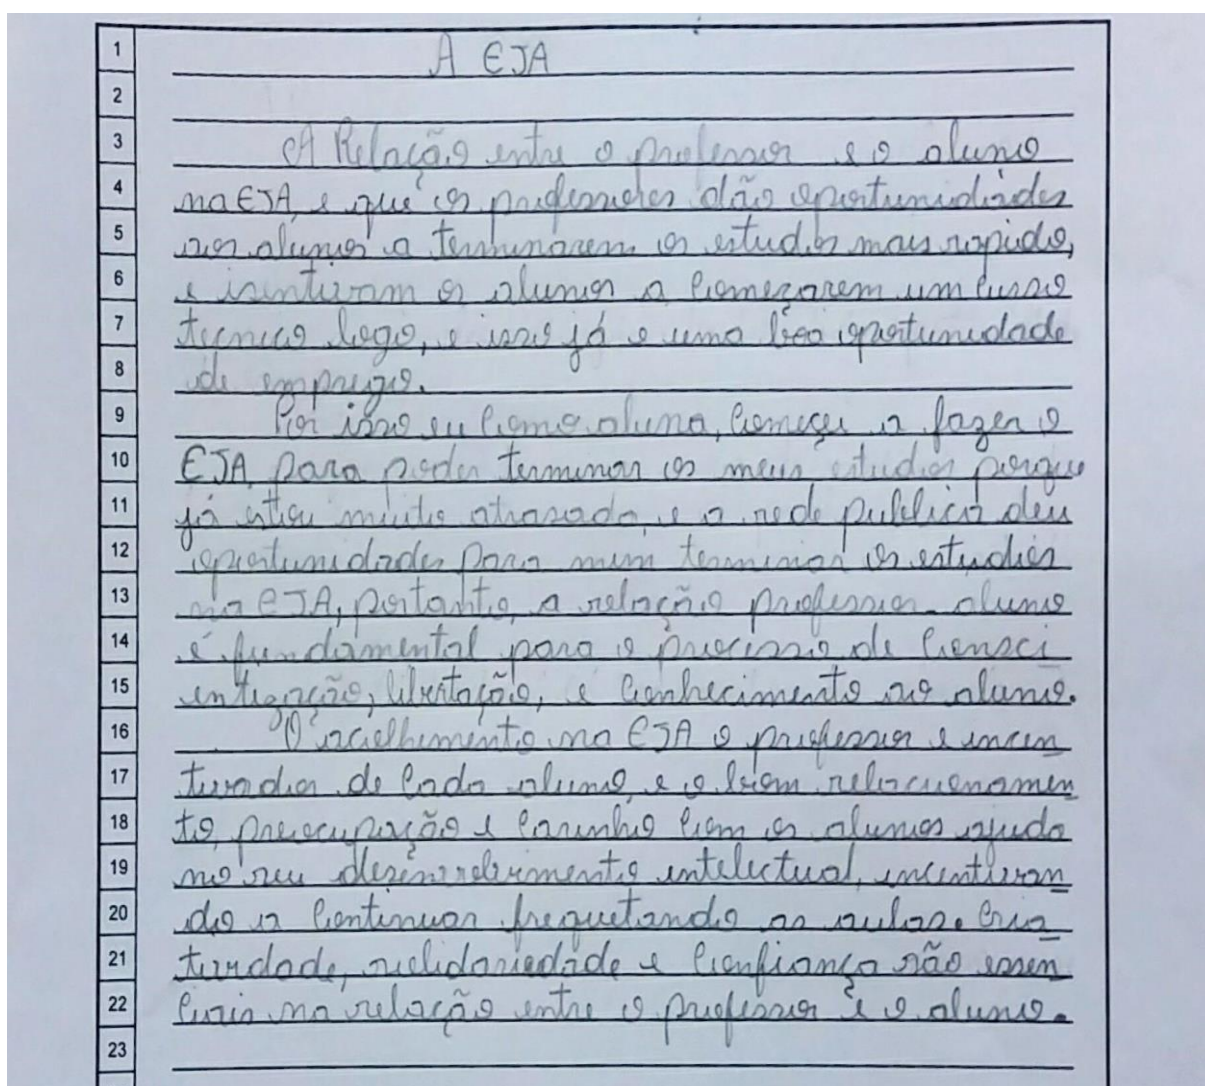 1 A EJA
2
3 A Relação entre o professor e o aluno
4 na EJA, e que os professores dão oportunidades
5 aos alunos a terminarem os estudos mais rapido,
6 e isentivam os alunos a começarem um curso
7 tecnico logo, e isso já e uma boa oportunidade
8 de emprego.
9 Por isso eu como aluna, começei a fazer o
10 EJA para poder terminar os meus estudos porque
11 já estou muito atrasada, e a rede publica deu
12 oportunidades para mim terminar os estudos
13 na EJA, portanto, a relação professor-aluno
14 é fundamental para o processo de consci
15 entização, libertação, e conhecimento ao aluno.
16 O acolhimento na EJA o professor e incen
17 tivador de cada aluno, e o bom relacionamen
18 to, preocupação e carinho com os alunos ajuda
19 no seu desenvolvimento intelectual, incentivan
20 do a continuar frequetando as aulas. Cria
21 tividade, solidariedade e confiança são essen
22 ciais na relação entre o professor e o aluno.
23